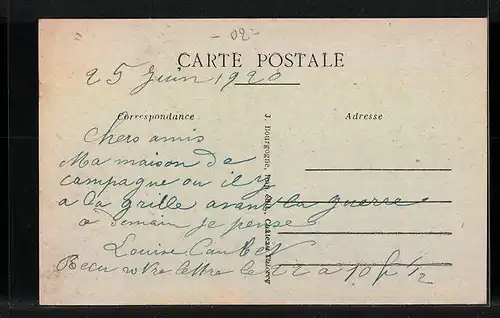 - 02 -
CARTE POSTALE
25 Juin 1920
Correspondance
Adresse
Chers amis
Ma maison de
campagne ou il y
a la grille avant la guerre
a demain je pense
Louise
Recu votre lettre le 22 a 10 h 1/2
J. Bourgogne, Château-Thierry